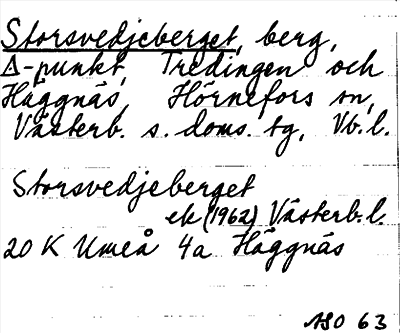 Storsvedjeberget, berg,
Δ-punkt, Tredingen och
Häggnäs, Hörnefors sn,
Västerb. s. doms. tg, Vb. l.
Storsvedjeberget
ek (1962) Västerb. l.
20 K Umeå 4a Häggnäs
63